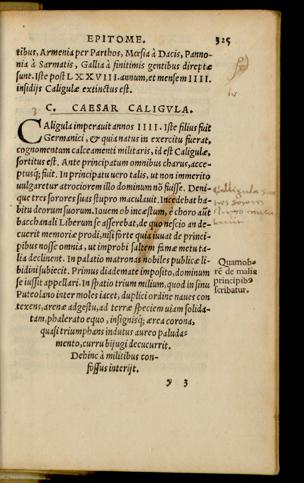 EPITOME. 325
tibus, Armenia per Parthos, Mœsia à Dacis, Panno-
nia à Sarmatis, Gallia à finitimis gentibus direptæ
sunt. Iste post LXXVIII. annum, et mensem IIII.
insidijs Caligulæ extinctus est.
C. CAESAR CALIGVLA.
CAligula imperauit annos IIII. Iste filius fuit
Germanici, & quia natus in exercitu fuerat,
cognomentum calceamenti militaris, id est Caligulæ,
sortitus est. Ante principatum omnibus charus, acce-
ptusq́; fuit. In principatu uero talis, ut non immerito
uulgaretur atrociorem illo dominum nõ fuisse. Deni-
que tres sorores suas stupro maculauit. Incedebat ha-
bitu deorum suorum. Iouem ob incæstum, è choro aũt
bacchanali Liberum se asserebat, de quo nescio an de-
cuerit memoriæ prodi, nisi forte quia iuuat de princi-
pibus nosse omnia, ut improbi saltem famæ metu ta-
lia declinent. In palatio matronas nobiles publicæ li-
bidini subiecit. Primus diademate imposito, dominum
se iussit appellari. In spatio trium milium, quod in sinu
Puteolano inter moles iacet, duplici ordine naues con
texens, arenæ adgestu, ad terræ speciem uiam solida-
tam, phalerato equo, insignisq́; ærea corona,
quasi triumphans indutus aureo paluda-
mento, curru bijugi decucurrit.
Dehinc à militibus con-
fossus interijt.
Quamob-
rẽ de malis
principibꝰ
scribatur.
y 3